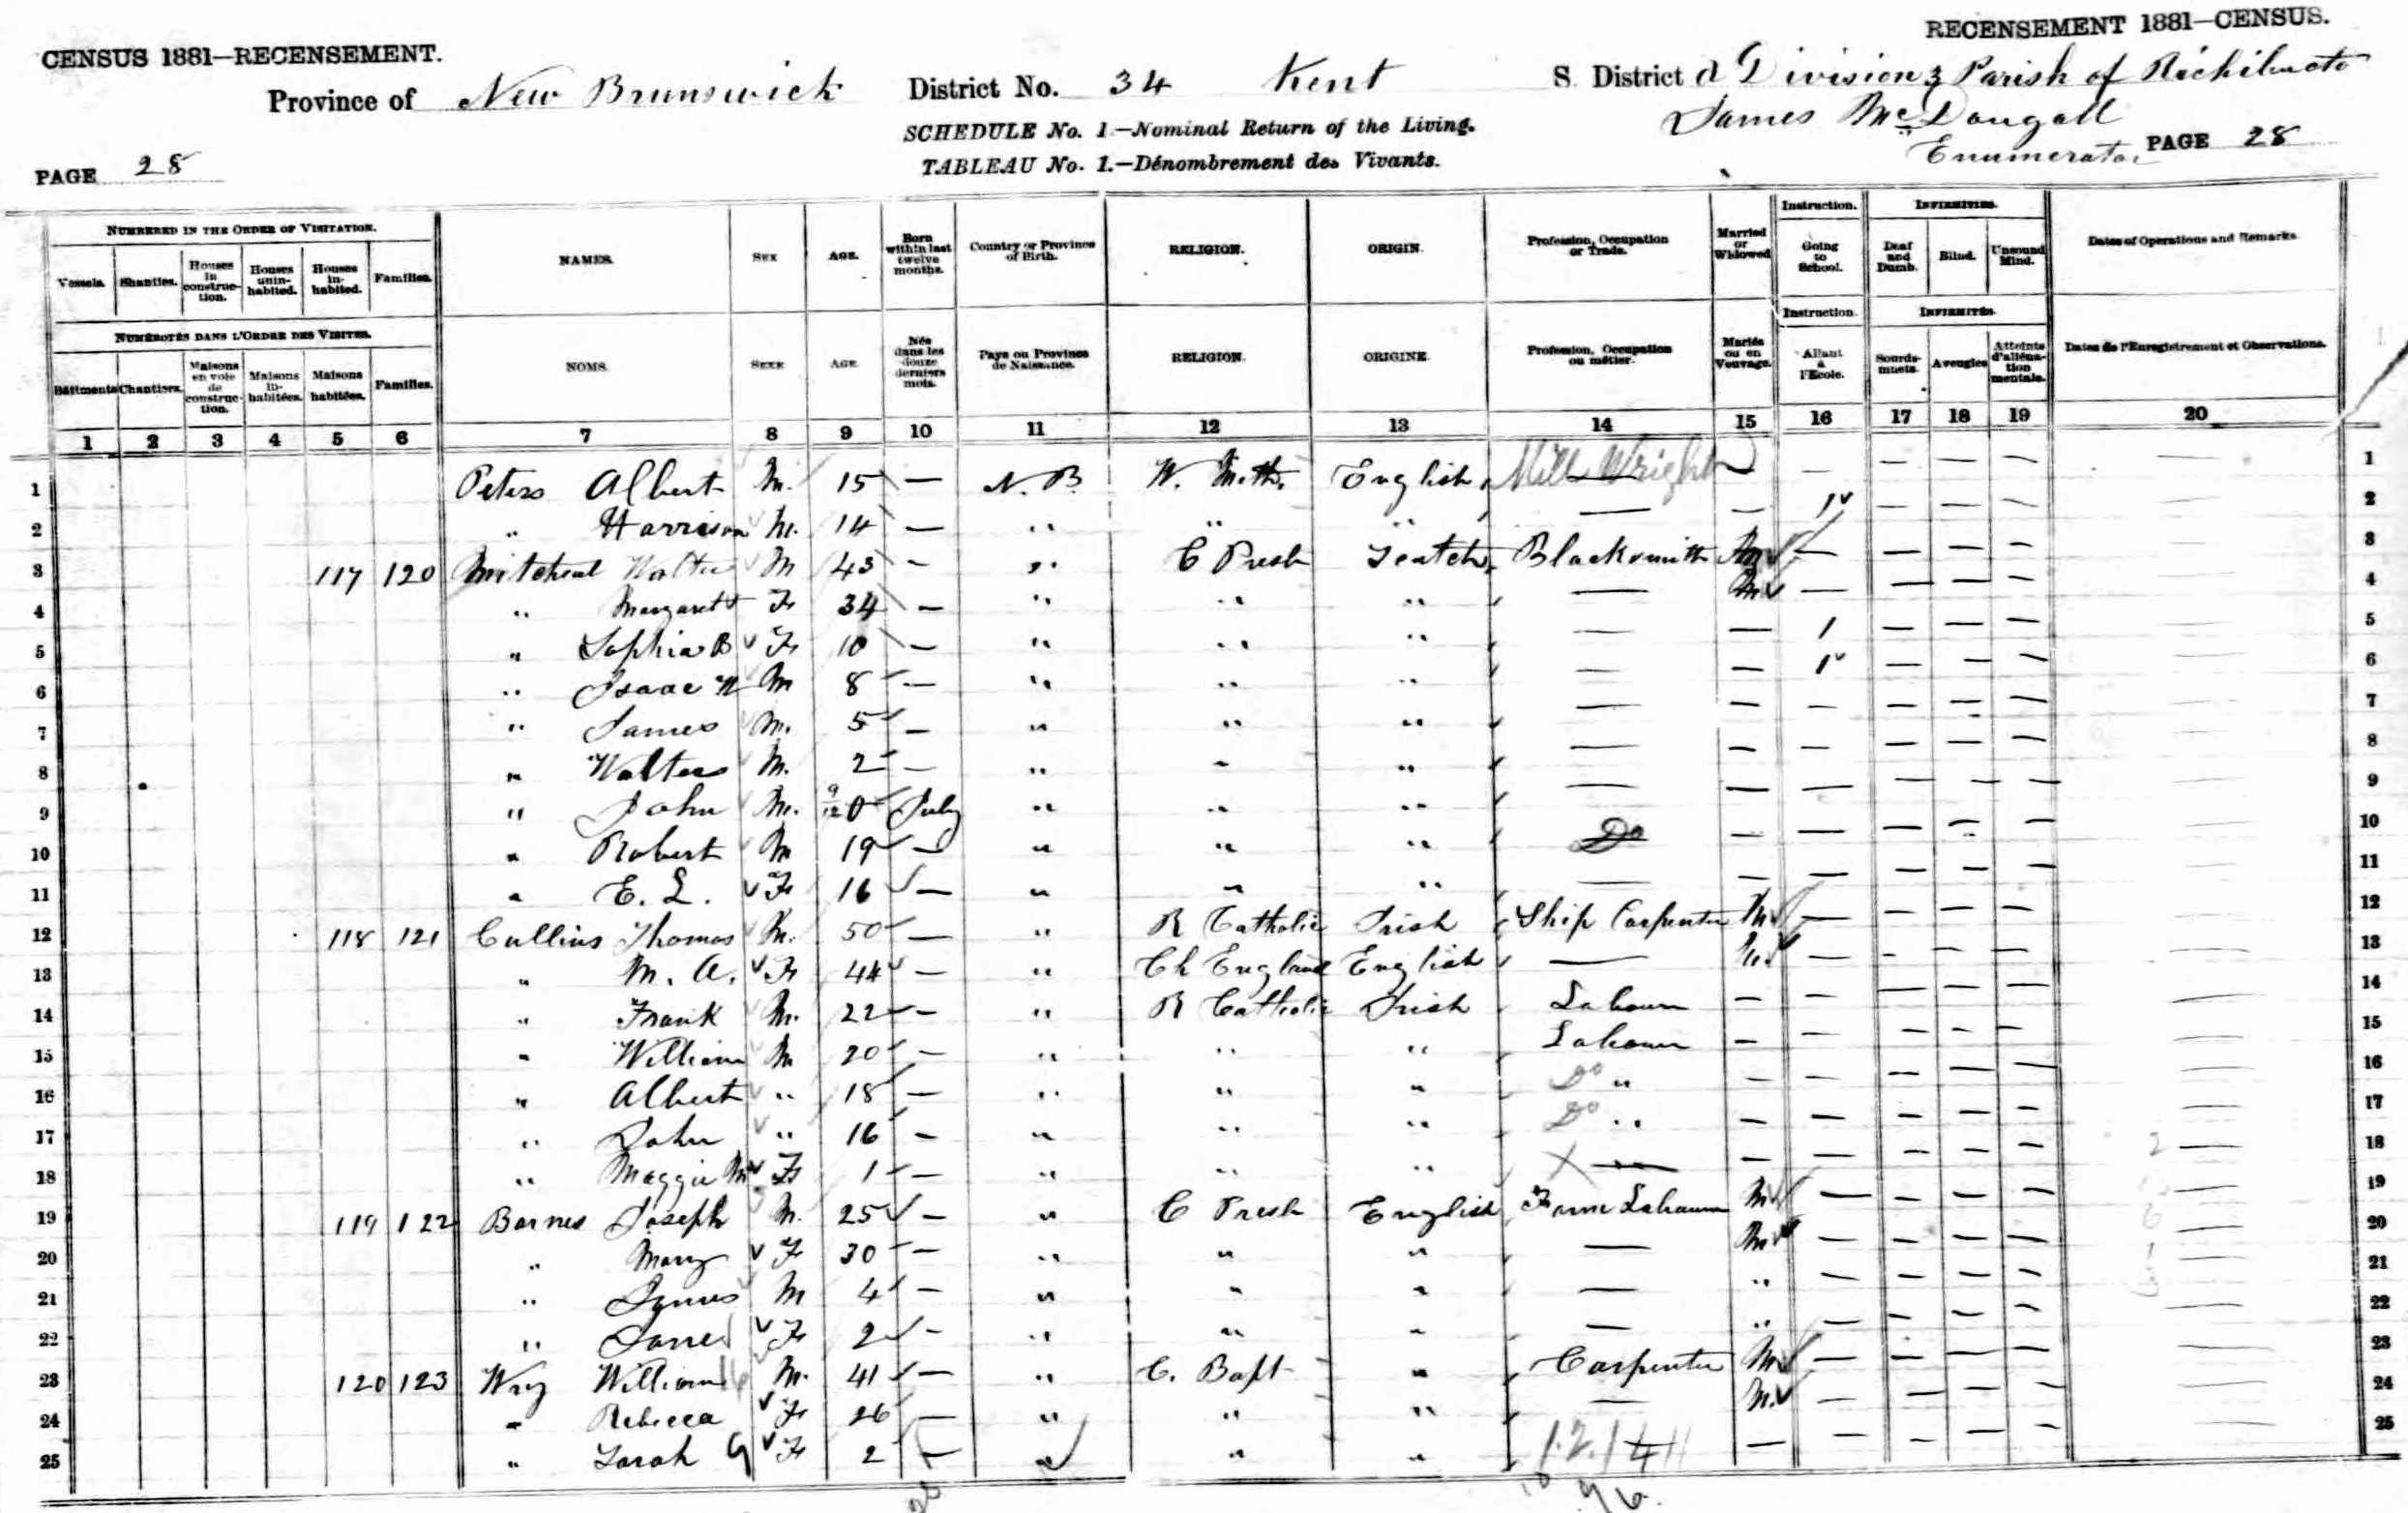 CENSUS 1881—RECENSEMENT.
RECENSEMENT 1881—CENSUS.
Province of New Brunswick District No. 34 Kent S. District d Division 3 Parish of Richibucto
James McDougall
Enumerator
SCHEDULE No. 1.—Nominal Return of the Living.
TABLEAU No. 1.—Dénombrement des Vivants.
PAGE 28
PAGE 28
NUMBERED IN THE ORDER OF VISITATION. NAMES. SEX AGE. Born within last twelve months. Country or Province of Birth. RELIGION. ORIGIN. Profession, Occupation or Trade. Married or Widowed Instruction. Going to School. INFIRMITIES. Dates of Operations and Remarks.
Vessels. Shanties. Houses in construction. Houses uninhabited. Houses inhabited. Families. Deaf and Dumb. Blind. Unsound Mind.
NUMÉROTÉS DANS L'ORDRE DES VISITES. NOMS. SEXE AGE. Nés dans les douze derniers mois. Pays ou Province de Naissance. RELIGION. ORIGINE. Profession, Occupation ou métier. Mariés ou en Veuvage. Instruction. Allant à l'École. INFIRMITÉS. Dates de l'Enregistrement et Observations.
Bâtiments Chantiers. Maisons en voie de construction. Maisons inhabitées. Maisons habitées. Familles. Sourds-muets. Aveugles Atteints d'aliénation mentale.
1 2 3 4 5 6 7 8 9 10 11 12 13 14 15 16 17 18 19 20
1 Peters Albert M. 15 — N. B. W. Meth. English Mill Wright — — — — — 1
2 " Harrison M. 14 — " " " — — 1 — — — 2
3 117 120 Mitcheal Walter M 43 — " C Presb Scotch Blacksmith M — — — — 3
4 " Margaret F 34 — " " " — M — — — — 4
5 " Sophia B F 10 — " " " — — 1 — — — 5
6 " Isaac W M 8 — " " " — — 1 — — — 6
7 " James M. 5 — " " " — — — — — — 7
8 " Walter M. 2 — " " " — — — — — — 8
9 " John M. 9/12 0 July " " " — — — — — — 9
10 " Robert M 19 — " " " Do — — — — — 10
11 " E. L. F 16 — " " " — — — — — — 11
12 118 121 Cullins Thomas M. 50 — " R Catholic Irish Ship Carpenter M — — — — 12
13 " M. A. F 44 — " Ch England English — M — — — — 13
14 " Frank M. 22 — " R Catholic Irish Labourer — — — — — 14
15 " William M 20 — " " " Labourer — — — — — 15
16 " Albert " 18 — " " " Do " — — — — — 16
17 " John " 16 — " " " Do " — — — — — 17
18 " Maggie M F 1 — " " " — — — — — — 18
19 119 122 Barnes Joseph M. 25 — " C Presb English Farm Labourer M — — — — 19
20 " Mary F 30 — " " " — M — — — — 20
21 " James M 4 — " " " — " — — — — 21
22 " Jane F 2 — " " " — " — — — — 22
23 120 123 Wry William M. 41 — " C. Bapt " Carpenter M — — — — 23
24 " Rebecca F 26 — " " " — M — — — — 24
25 " Sarah G F 2 — " " " — — — — — 25